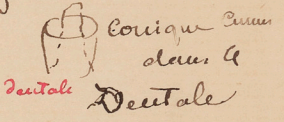 Conique
dans le
Dentale
Dentale